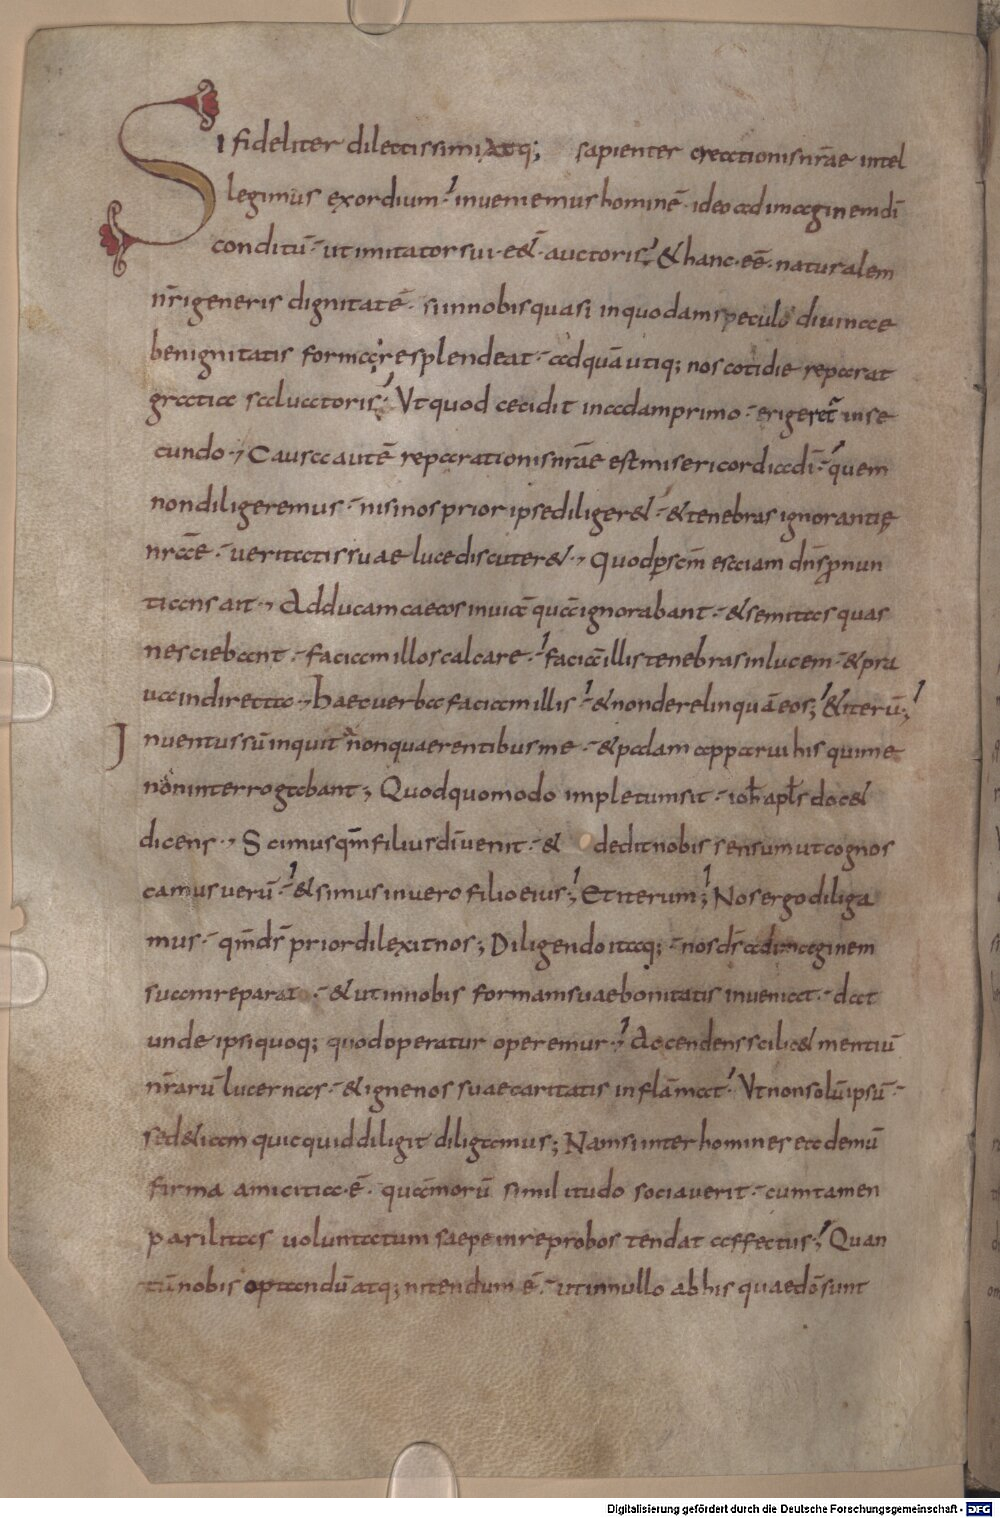 Si fideliter dilectissimi atq; sapienter creationis nr̄ae intel
legimus exordium· inveniemus hominē· ideo ad imaginem dī
conditū· ut imitator sui· eēt· auctoris· & hanc· eē· naturalem
nr̄i generis dignitatē· si in nobis quasi in quodam speculo divinae
benignitatis forma resplendeat· ad quā utiq; nos cotidie reparat
gratia salvatoris· Ut quod cecidit in adam primo· erigeret in se
cundo· Causa autē reparationis nr̄ae est misericordia dī· quem
non diligeremus· nisi nos prior ipse diliger&· & tenebras ignorantię
nr̄ae· veritatis suae luce discuter&· Quod p scm̄ esaiam dn̄s pnun
tians ait· Adducam caecos in viā quā ignorabant· & semitas quas
nesciebant· faciam illos calcare· faciā illis tenebras in lucem· & pra
va in directa· haec verba faciam illis· & non derelinquā eos; & iterū;
Inventus sū inquit non quaerentibus me· & palam apparui his qui me
non interrogabant; Quod quomodo impletum sit· ioh apls doc&
dicens· Scimus qm̄ filius dī venit· & dedit nobis sensum ut cognos
camus verū· & simus in vero filio eius; Et iterum; Nos ergo diliga
mus· qm̄ ds̄ prior dilexit nos; Diligendo itaq;· nos ds̄ ad imaginem
suam reparat· & ut in nobis formam suae bonitatis inveniat· dat
unde ipsi quoq; quod operatur operemur· Accendens scilic& mentiū
nr̄arū lucernas· & igne nos suae caritatis inflāmat· Ut non solū ipsū·
sed &iam quicquid diligit diligamus; Nam si inter homines ea demū
firma amicitia· ē· quā morū similitudo sociaverit· cum tamen
parilitas voluntatum saepe in reprobos tendat affectus; Quan
tū nobis optandū atq; nitendum ē· ut in nullo ab his quae dō sunt
Digitalisierung gefördert durch die Deutsche Forschungsgemeinschaft - DFG